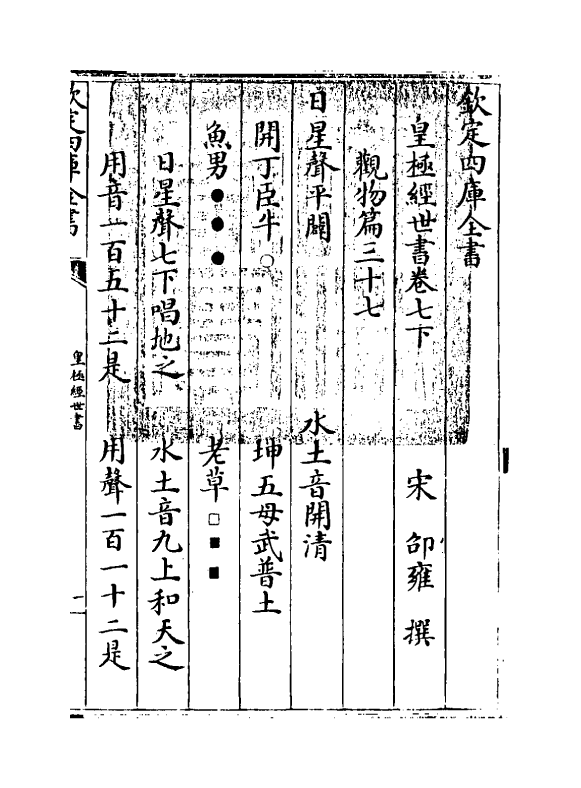 欽定四庫全書
皇極經世書卷七下 宋 邵雍 撰
觀物篇三十七
日星聲平闢 水土音開清
開丁臣牛○ 坤五母武普土
魚男●●● 老草□■■
日星聲七下唱地之 水土音九上和天之
用音一百五十二是 用聲一百一十二是
欽定四庫全書
皇極經世書
一